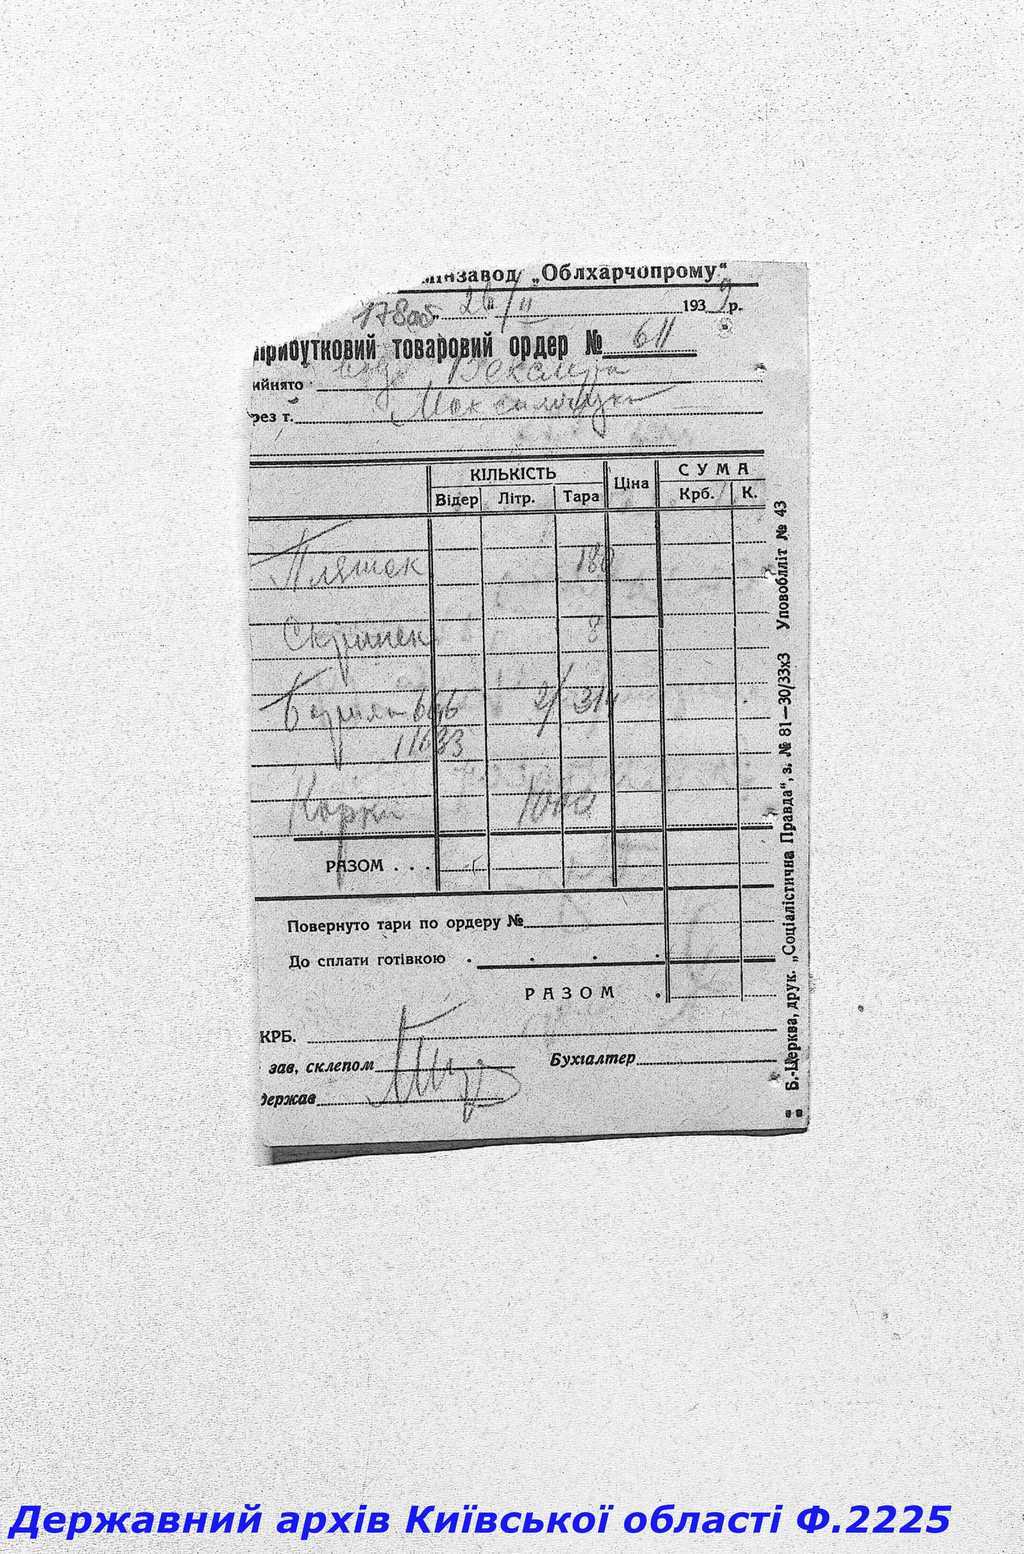 „Облхарчопрому“
178об
26/II 1939 р.
Прибутковий товаровий ордер № 611
ийнято
рез т.
КІЛЬКІСТЬ Ціна СУМА
Відер Літр. Тара Крб. К.
Пляшек 180
Скринек 8
646 2/
11633
Корки
РАЗОМ . . .
Повернуто тари по ордеру №
До сплати готівкою
РАЗОМ
КРБ.
зав, склепом Бухгалтер
держав
Б.-Церква, друк. „Соціалістична Правда“, з. № 81—30/33х3 Уповобліт № 43
Державний архів Київської області Ф.2225